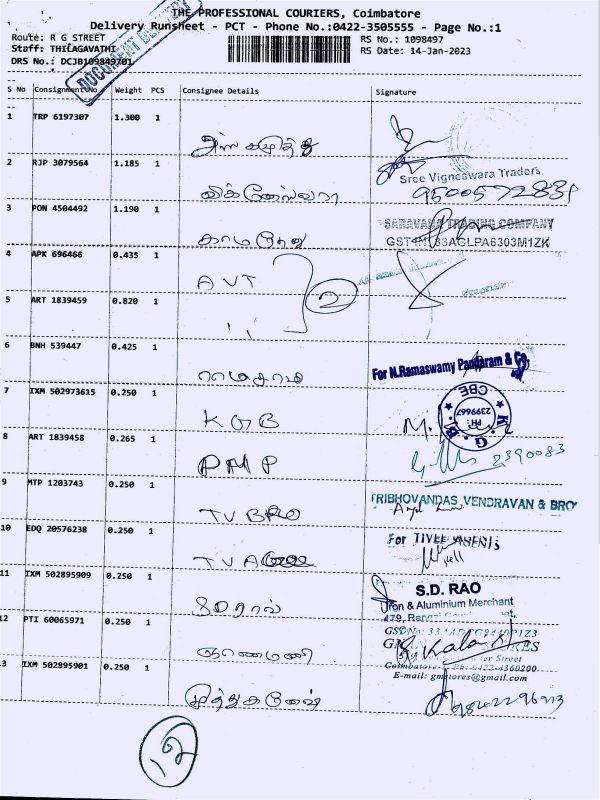 THE PROFESSIONAL COURIERS, Coimbatore
Delivery Runsheet - PCT - Phone No.:0422-3505555 - Page No.:1
Route: R G STREET
RS No.: 1098497
Staff: THILAGAVATHI
RS Date: 14-Jan-2023
DRS No.: DCJB109849701
DOCUMENT DELIVERY
S No Consignment No Weight PCS Consignee Details Signature
1 TRP 6197307 1.300 1
2 RJP 3079564 1.185 1
Sree Vigneswara Traders
விக்னேஸ்வரா
3 PON 4504492 1.190 1
SARAVANA TRADING COMPANY
காமதேனு
4 APK 696466 0.435 1
AVT
2
5 ART 1839459 0.820 1
6 BNH 539447 0.425 1
For N.Ramaswamy Pandaram & Co.
ராமசாமி
7 IXM 502973615 0.250 1
K.G.B. CBE PH: 2399667
KGB
8 ART 1839458 0.265 1
PMP
2390083
9 MTP 1203743 0.250 1
TRIBHOVANDAS VENDRAVAN & BRO
TV BRO
10 EDQ 20576238 0.250 1
For TIVEE AGENTS
11 IXM 502895909 0.250 1
S.D. RAO
Iron & Aluminium Merchant
SDராவ்
12 PTI 60065971 0.250 1
Kala
ஞானமணி
E-mail: gmstores@gmail.com
13 IXM 502895901 0.250 1
முத்துகணேஷ்